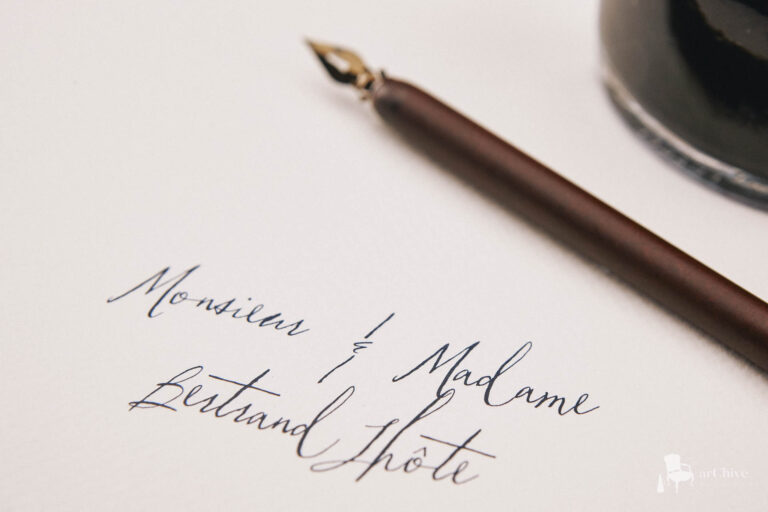 Monsieur & Madame
Bertrand Lhôte
art hive